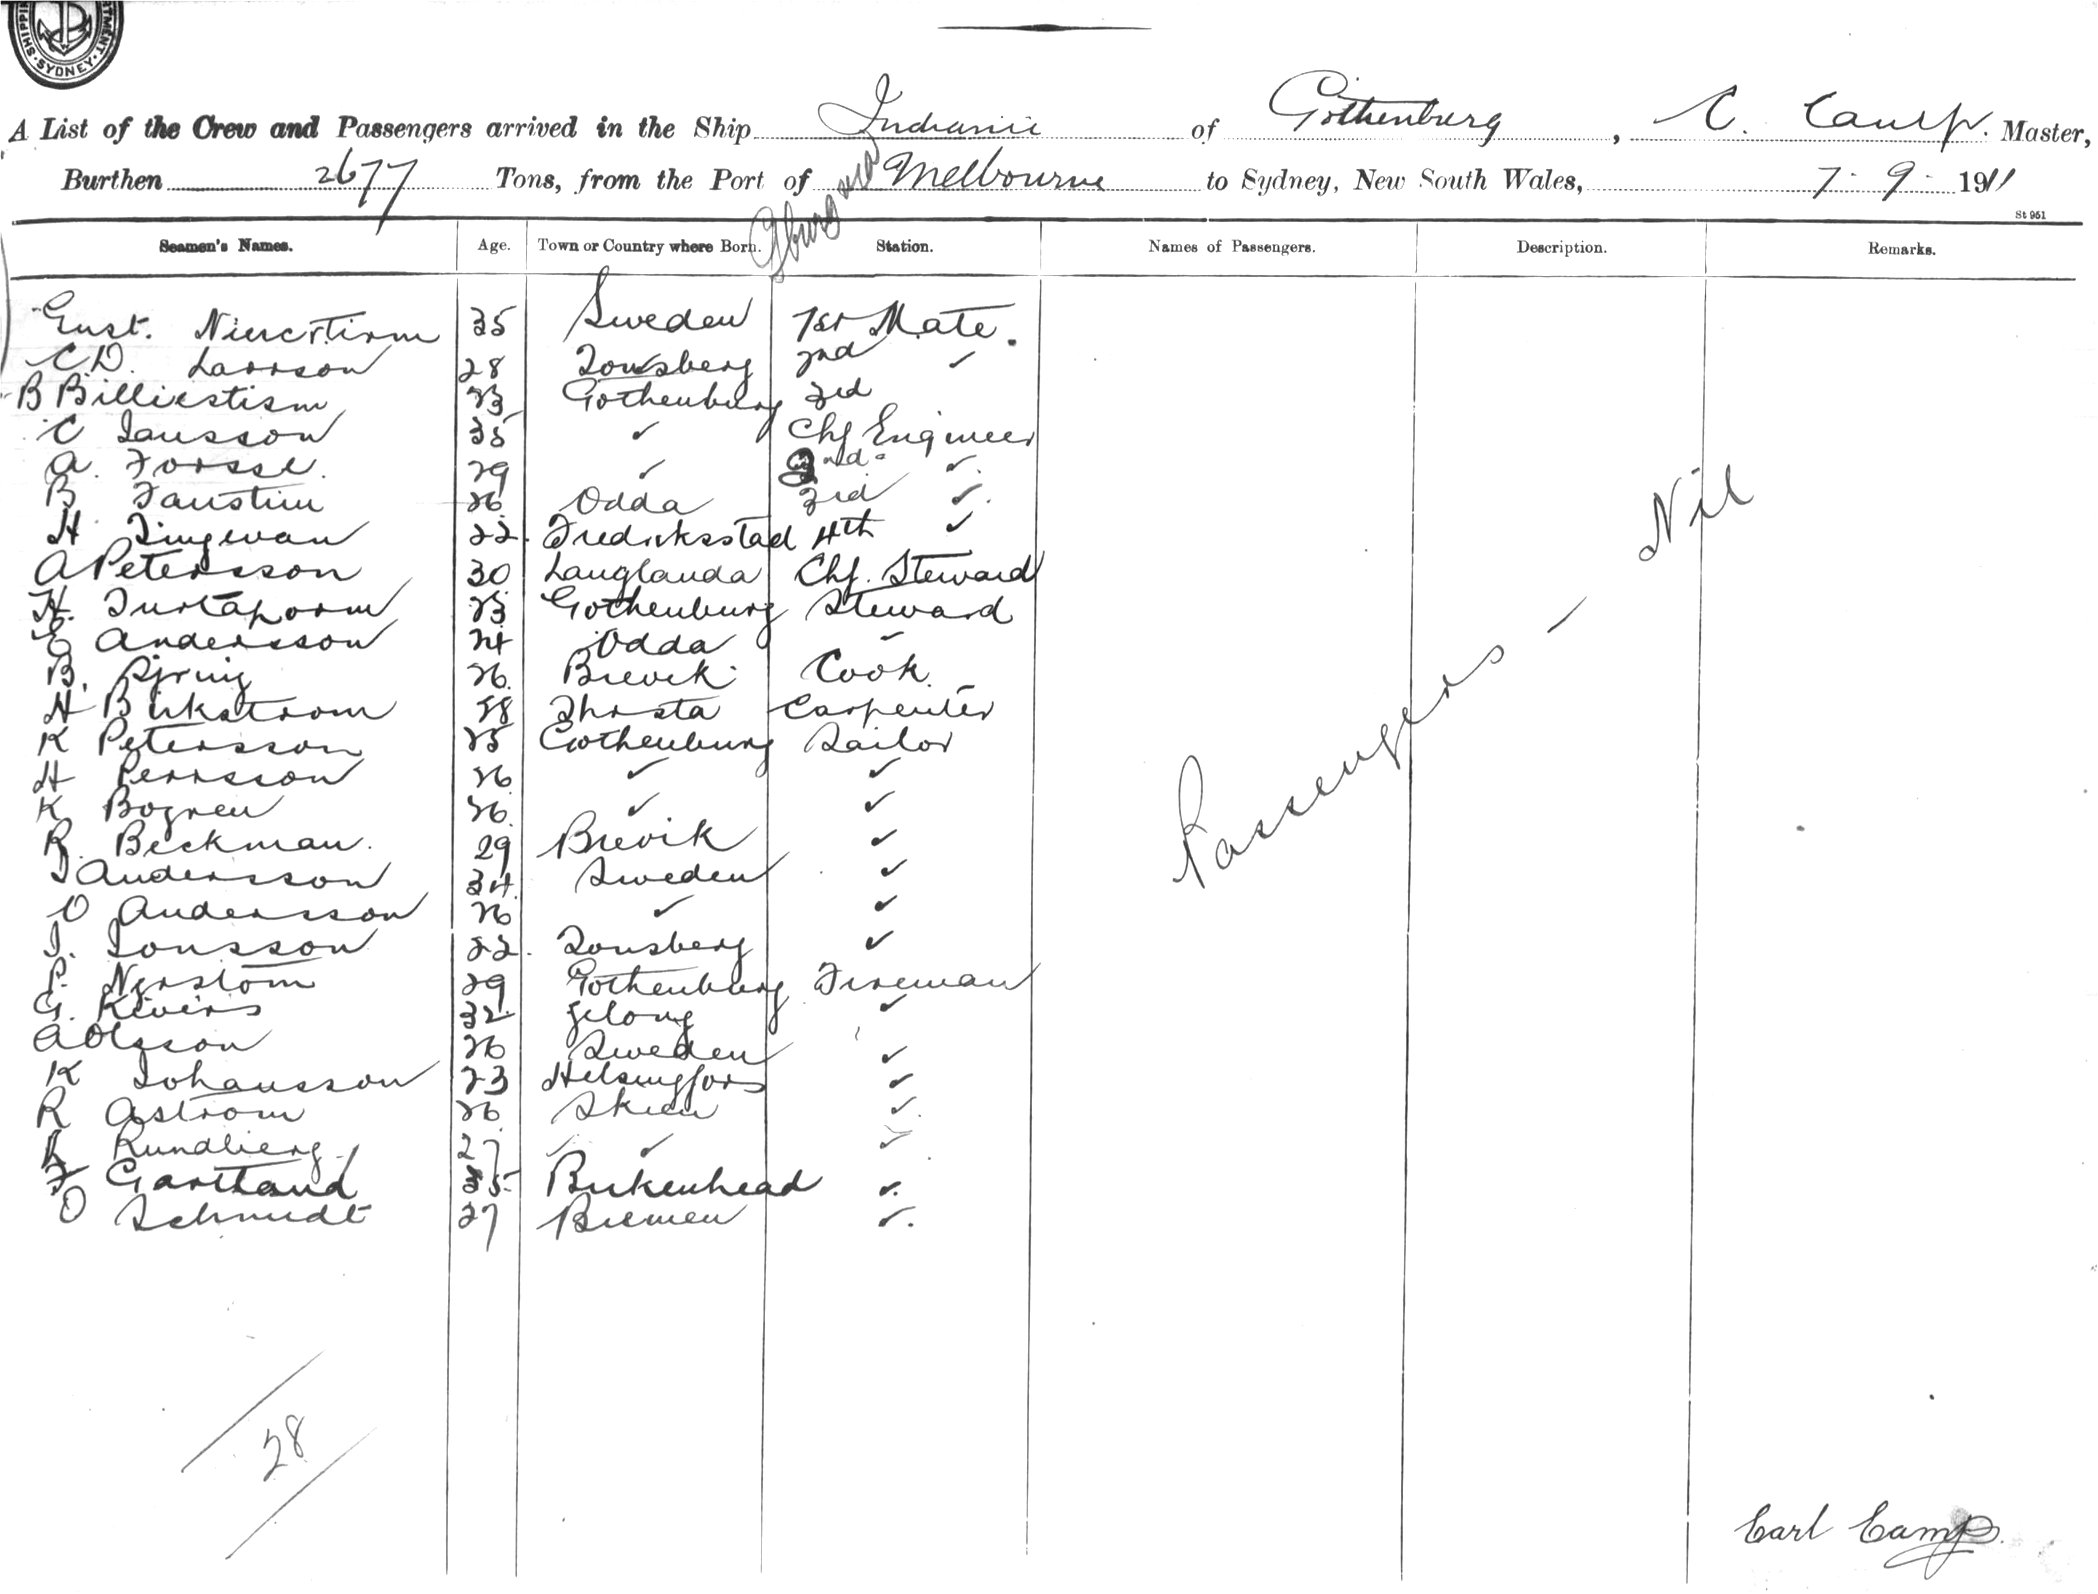 SHIPPING DEPARTMENT · SYDNEY ·
A List of the Crew and Passengers arrived in the Ship Indianic of Gothenburg, C. Camp. Master,
Burthen 2677 Tons, from the Port of Gburg via Melbourne to Sydney, New South Wales, 7-9-1911
St 951
Seamen's Names. Age. Town or Country where Born. Station. Names of Passengers. Description. Remarks.
Gust. 35 Sweden 1st Mate.
C D. Larsson 28 Tonsberg 2nd ✓
B 23 Gothenburg 3rd
C Jansson 35 ✓ Chf Engineer
A. Forssl. 29 ✓ 2nd ✓
B Faustin 26 Odda 3rd ✓
H 22 Fredriksstad 4th ✓
A Petersson 30 Langlanda Chf. Steward
H. 23 Gothenburg Steward
E Andersson 24 Odda -
B. 26. Brevik Cook
H Birkstrom 38 Carpenter
K Petersson 25 Gothenburg Sailor
H Persson 26 ✓ ✓
K Bogren 26. ✓ ✓
R. Beckman. 29 Brevik ✓
J Andersson 34 Sweden ✓
O Andersson 26 ✓ ✓
J. Jonsson 22. Tonsberg ✓
P. Nerstom 29 Gothenburg Fireman
G. Kivers 32 Gelong ✓
A Olsson 26 Sweden ✓
K Johansson 23 Helsingfors ✓
R Astrom 26 Skien ✓
R Rundberg 27 ✓ ✓
F Gartland 35 Birkenhead ✓
O Schmidt 27 Bremen ✓
Passengers - Nil
28
Carl Camp.